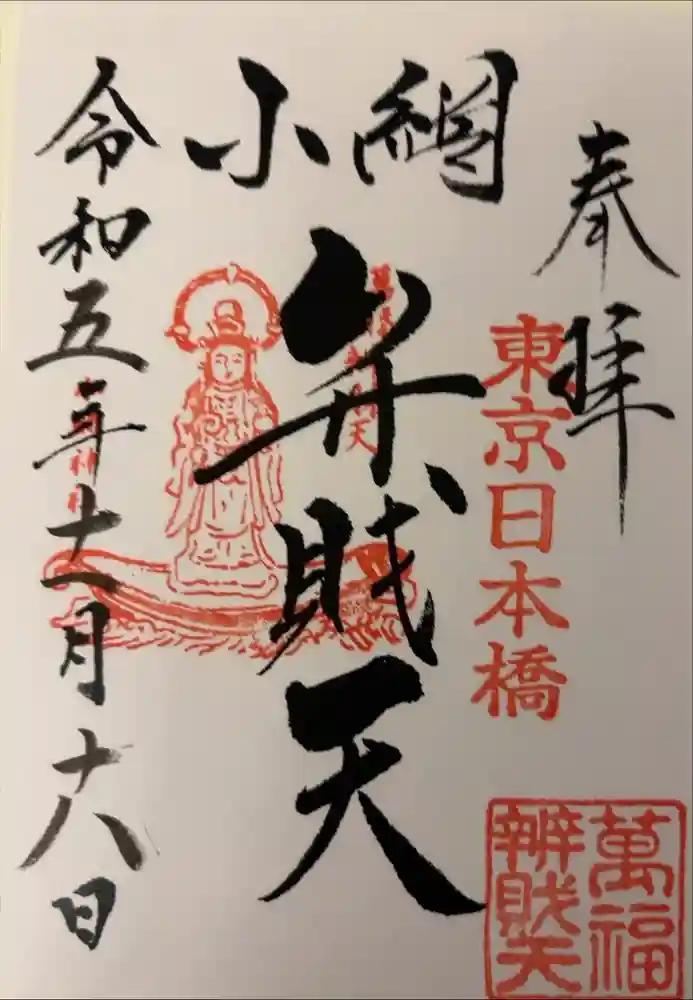 奉拝
東京日本橋
小網
弁財天
令和五年十一月十八日
萬福
辨財天